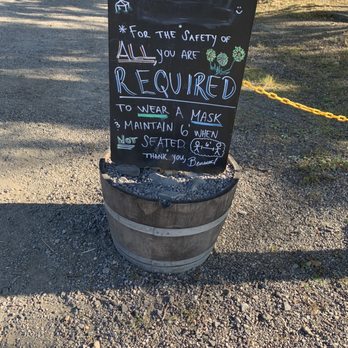 *FOR THE SAFETY OF
ALL YOU ARE
REQUIRED
TO WEAR A MASK
& MAINTAIN 6' WHEN
NOT SEATED
THANK YOU,